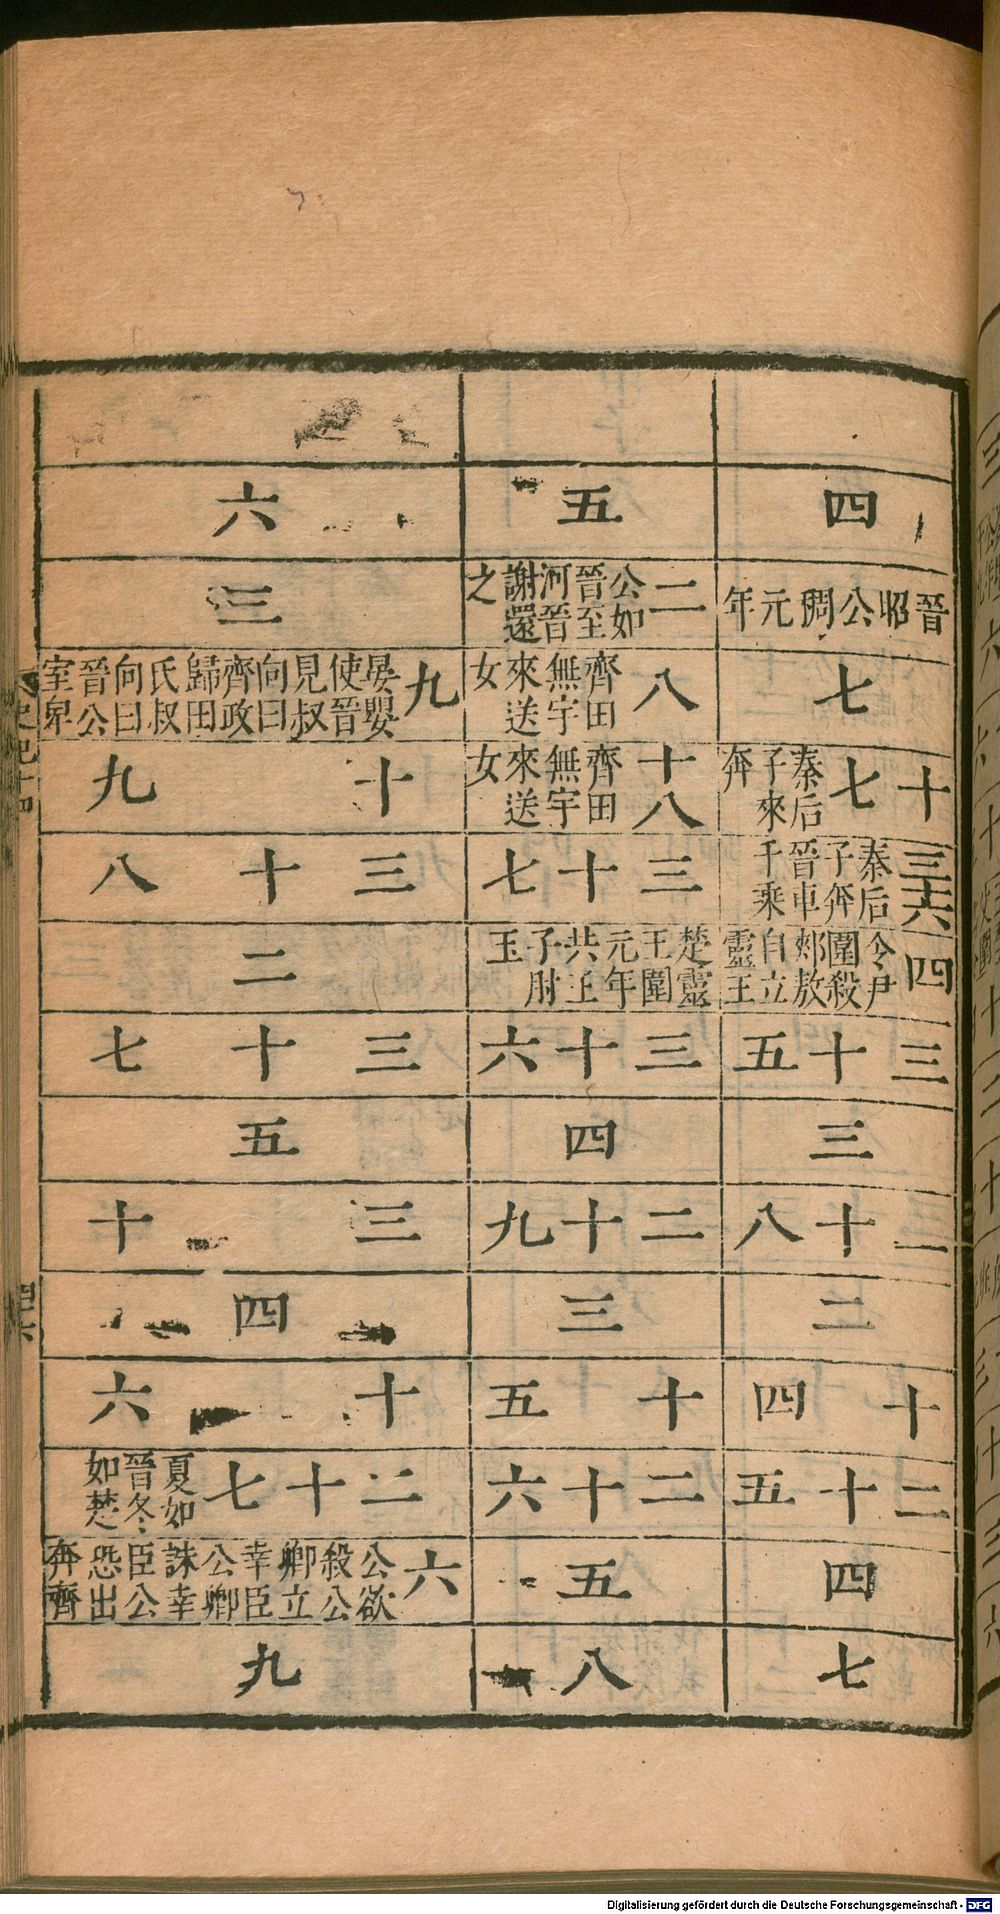 四
晉昭公稠元年
七
十七 秦后子來奔
三十六 秦后子奔晉車千乘
四 令尹圍殺郟敖自立靈王
三十五
三
一十八
二
十四
二十五
四
七
五
二 公如晉至河晉謝還之
八 齊田無宇來送女
十八 齊田無宇來送女
三十七
楚靈王圍元年共王子肘玉
三十六
四
二十九
三
十五
二十六
五
八
六
三
九 晏嬰使晉見叔向曰齊政歸田氏叔向曰晉公室卑
十九
三十八
二
三十七
五
三十
四
十六
二十七 夏如晉冬如楚
六 公欲殺公卿立幸臣公卿誅幸臣公恐出奔齊
九
史記十四
四十六
Digitalisierung gefördert durch die Deutsche Forschungsgemeinschaft - DFG